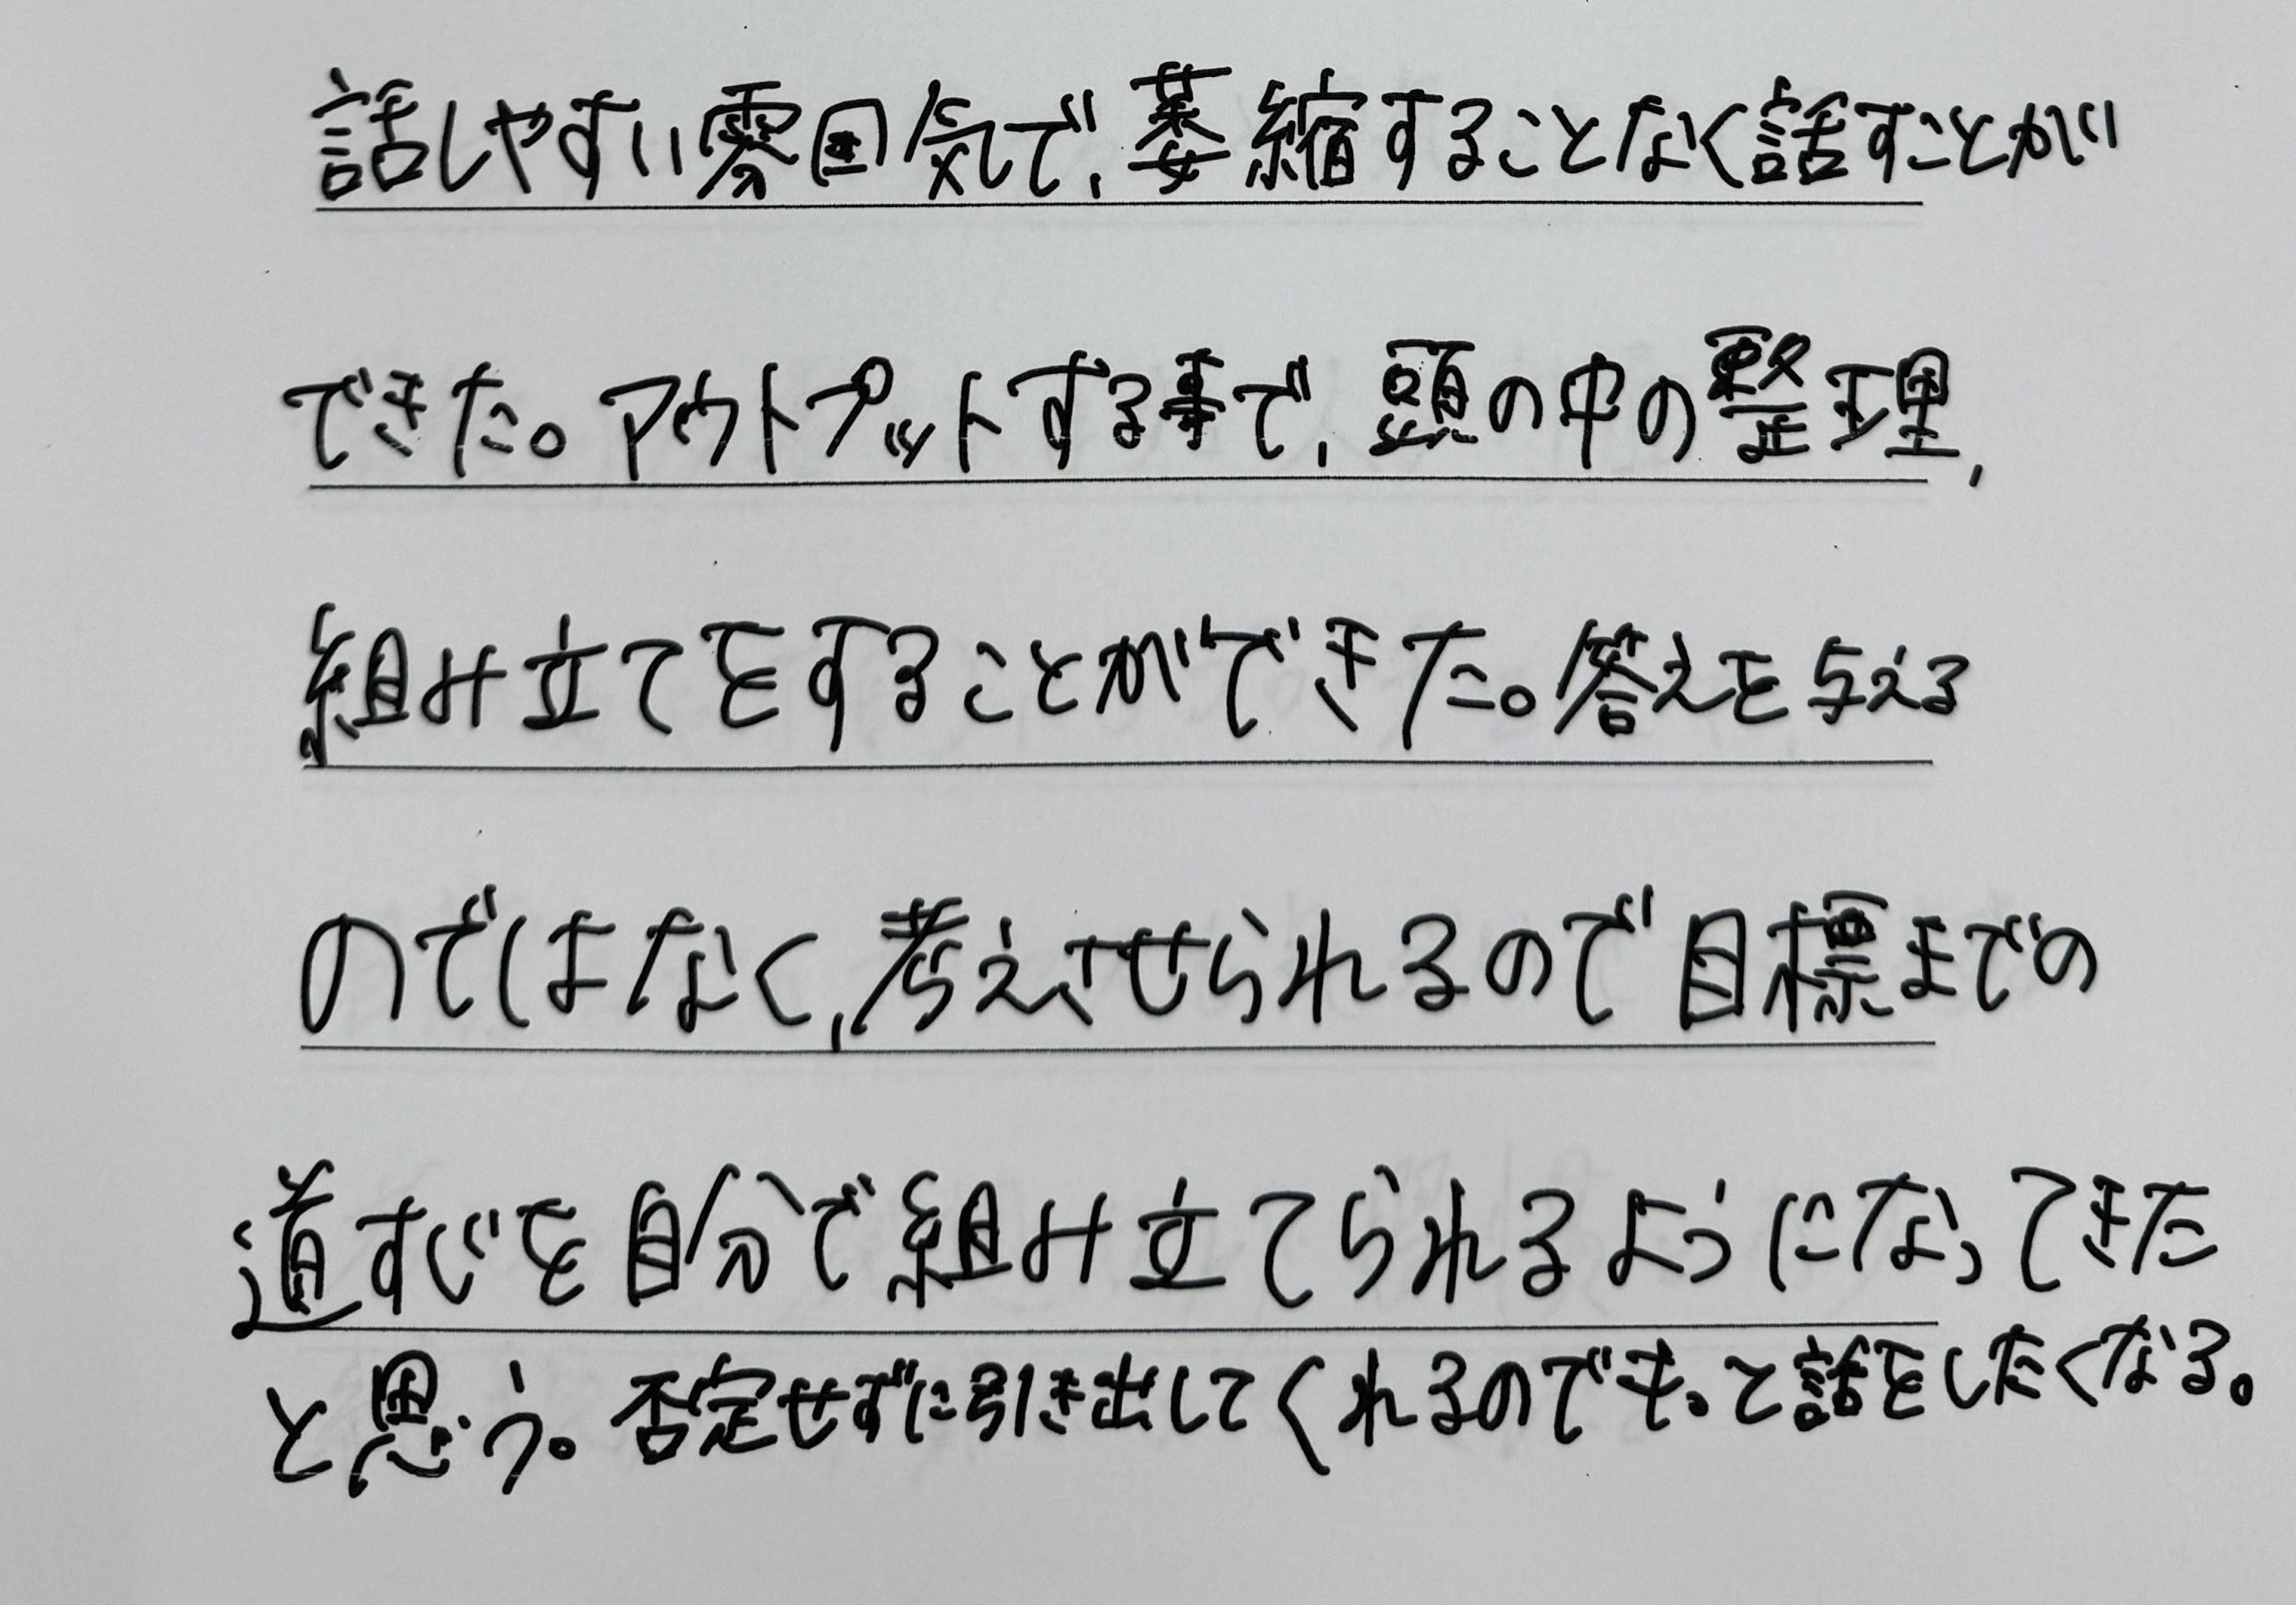 話しやすい雰囲気で、萎縮することなく話すことが
できた。アウトプットする事で、頭の中の整理、
組み立てをすることができた。答えを与える
のではなく、考えさせられるので目標までの
道すじを自分で組み立てられるようになってきた
と思う。否定せずに引き出してくれるのでもっと話をしたくなる。